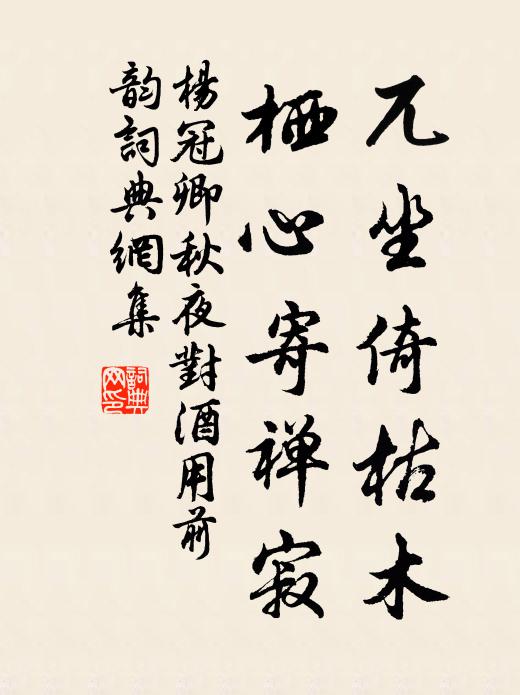 兀坐倚枯木
栖心寄禅寂
楊冠卿秋夜對酒用前
韵詞典網集
詞典
网印